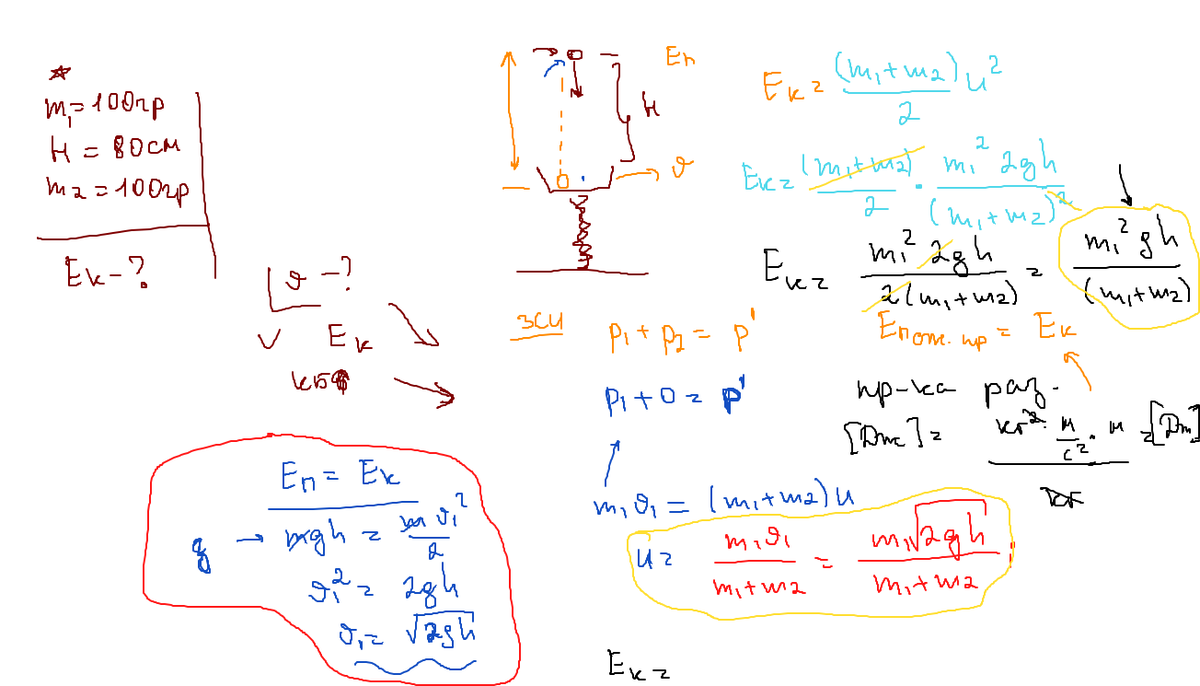 m₁=100гр
H = 80см
m₂=100гр
Eк-?
υ-?
Eк
Eп
H
υ
зси
p₁+p₂= p'
p₁+0= p'
m₁υ₁ = (m₁+m₂)u
u= m₁υ₁/(m₁+m₂) = m₁√2gh/(m₁+m₂)
Eп = Eк
mgh = mυ₁²/2
υ₁² = 2gh
υ₁= √2gh
Eк= (m₁+m₂)u²/2
Eк= (m₁+m₂)/2 · m₁² 2gh/(m₁+m₂)²
Eк= m₁² 2gh/2(m₁+m₂) = m₁² gh/(m₁+m₂)
Eпот. пр = Eк
пр-ка раз.
[Дж]= кг²· м/с² · м / кг =[Дж]
Eк=